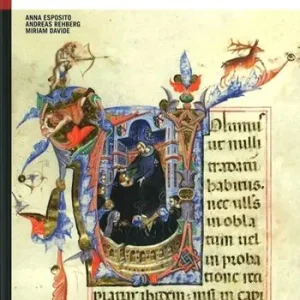 ANNA ESPOSITO
ANDREAS REHBERG
MIRIAM DAVIDE
olumus
ut nulli
tradatur
habitus.
nec ullus
in obla
tum uel
in proba
tione reci
piatur ibidem: nisi in capi